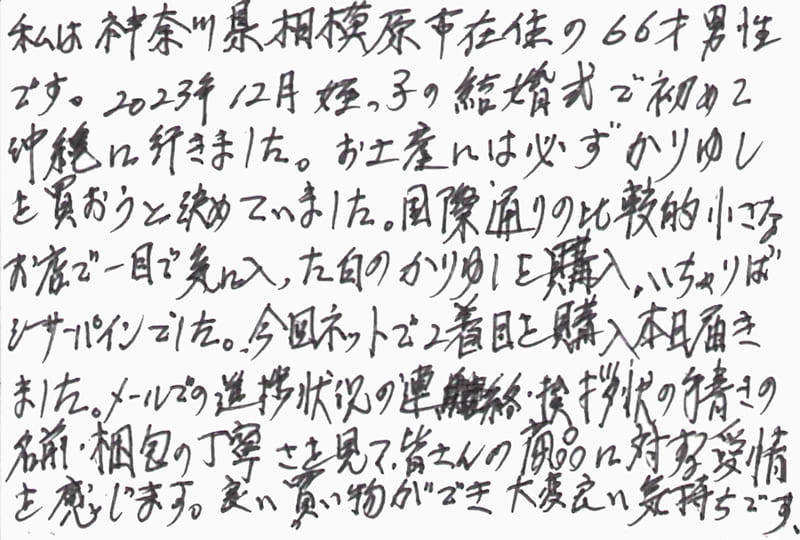 私は神奈川県相模原市在住の66才男性
です。2023年12月姪っ子の結婚式で初めて
沖縄に行きました。お土産には必ずかりゆし
を買おうと決めていました。国際通りの比較的小さな
お店で一目で気に入った白のかりゆしを購入。いちゃりば
シーサーパインでした。今回ネットで2着目を購入本日届き
ました。メールでの進捗状況の連絡・挨拶状の手書きの
名前・梱包の丁寧さを見て、皆さんの商品に対する愛情
を感じます。良い買い物ができ大変良い気持ちです、